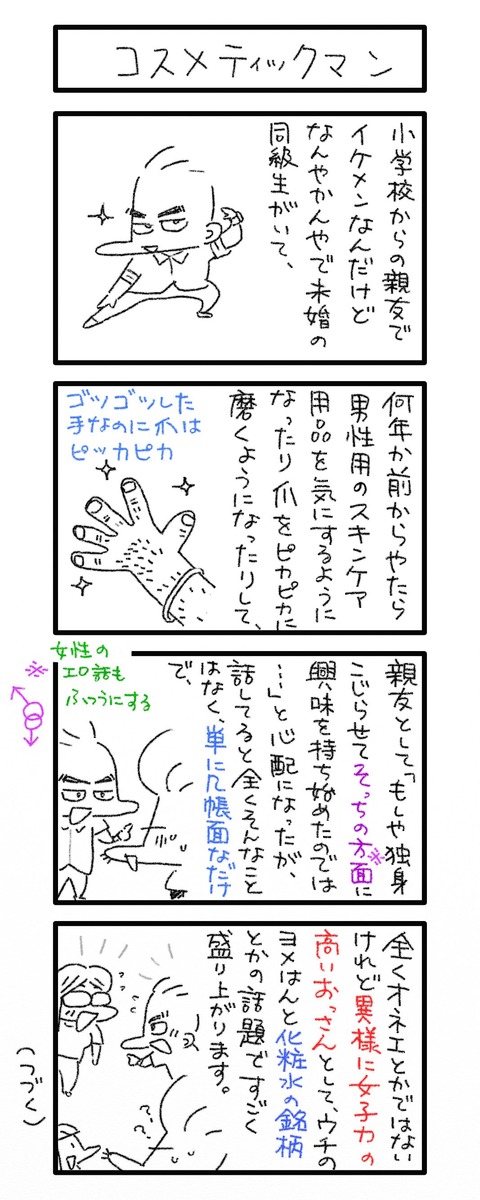 コスメティックマン
小学校からの親友で
イケメンなんだけど
なんやかんやで未婚の
同級生がいて、
何年か前からやたら
男性用のスキンケア
用品を気にするように
なったり爪をピカピカに
磨くようになったりして、
ゴツゴツした
手なのに爪は
ピッカピカ
親友として「もしや独身
こじらせてそっちの方面※に
興味を持ち始めたのでは
…」と心配になったが、
話してると全くそんなこと
はなく、単に几帳面なだけ
で、
※
女性の
エロ話も
ふつうにする
全くオネエとかではない
けれど異様に女子力の
高いおっさんとして、ウチの
ヨメはんと化粧水の銘柄
とかの話題ですごく
盛り上がります。
???
(つづく)